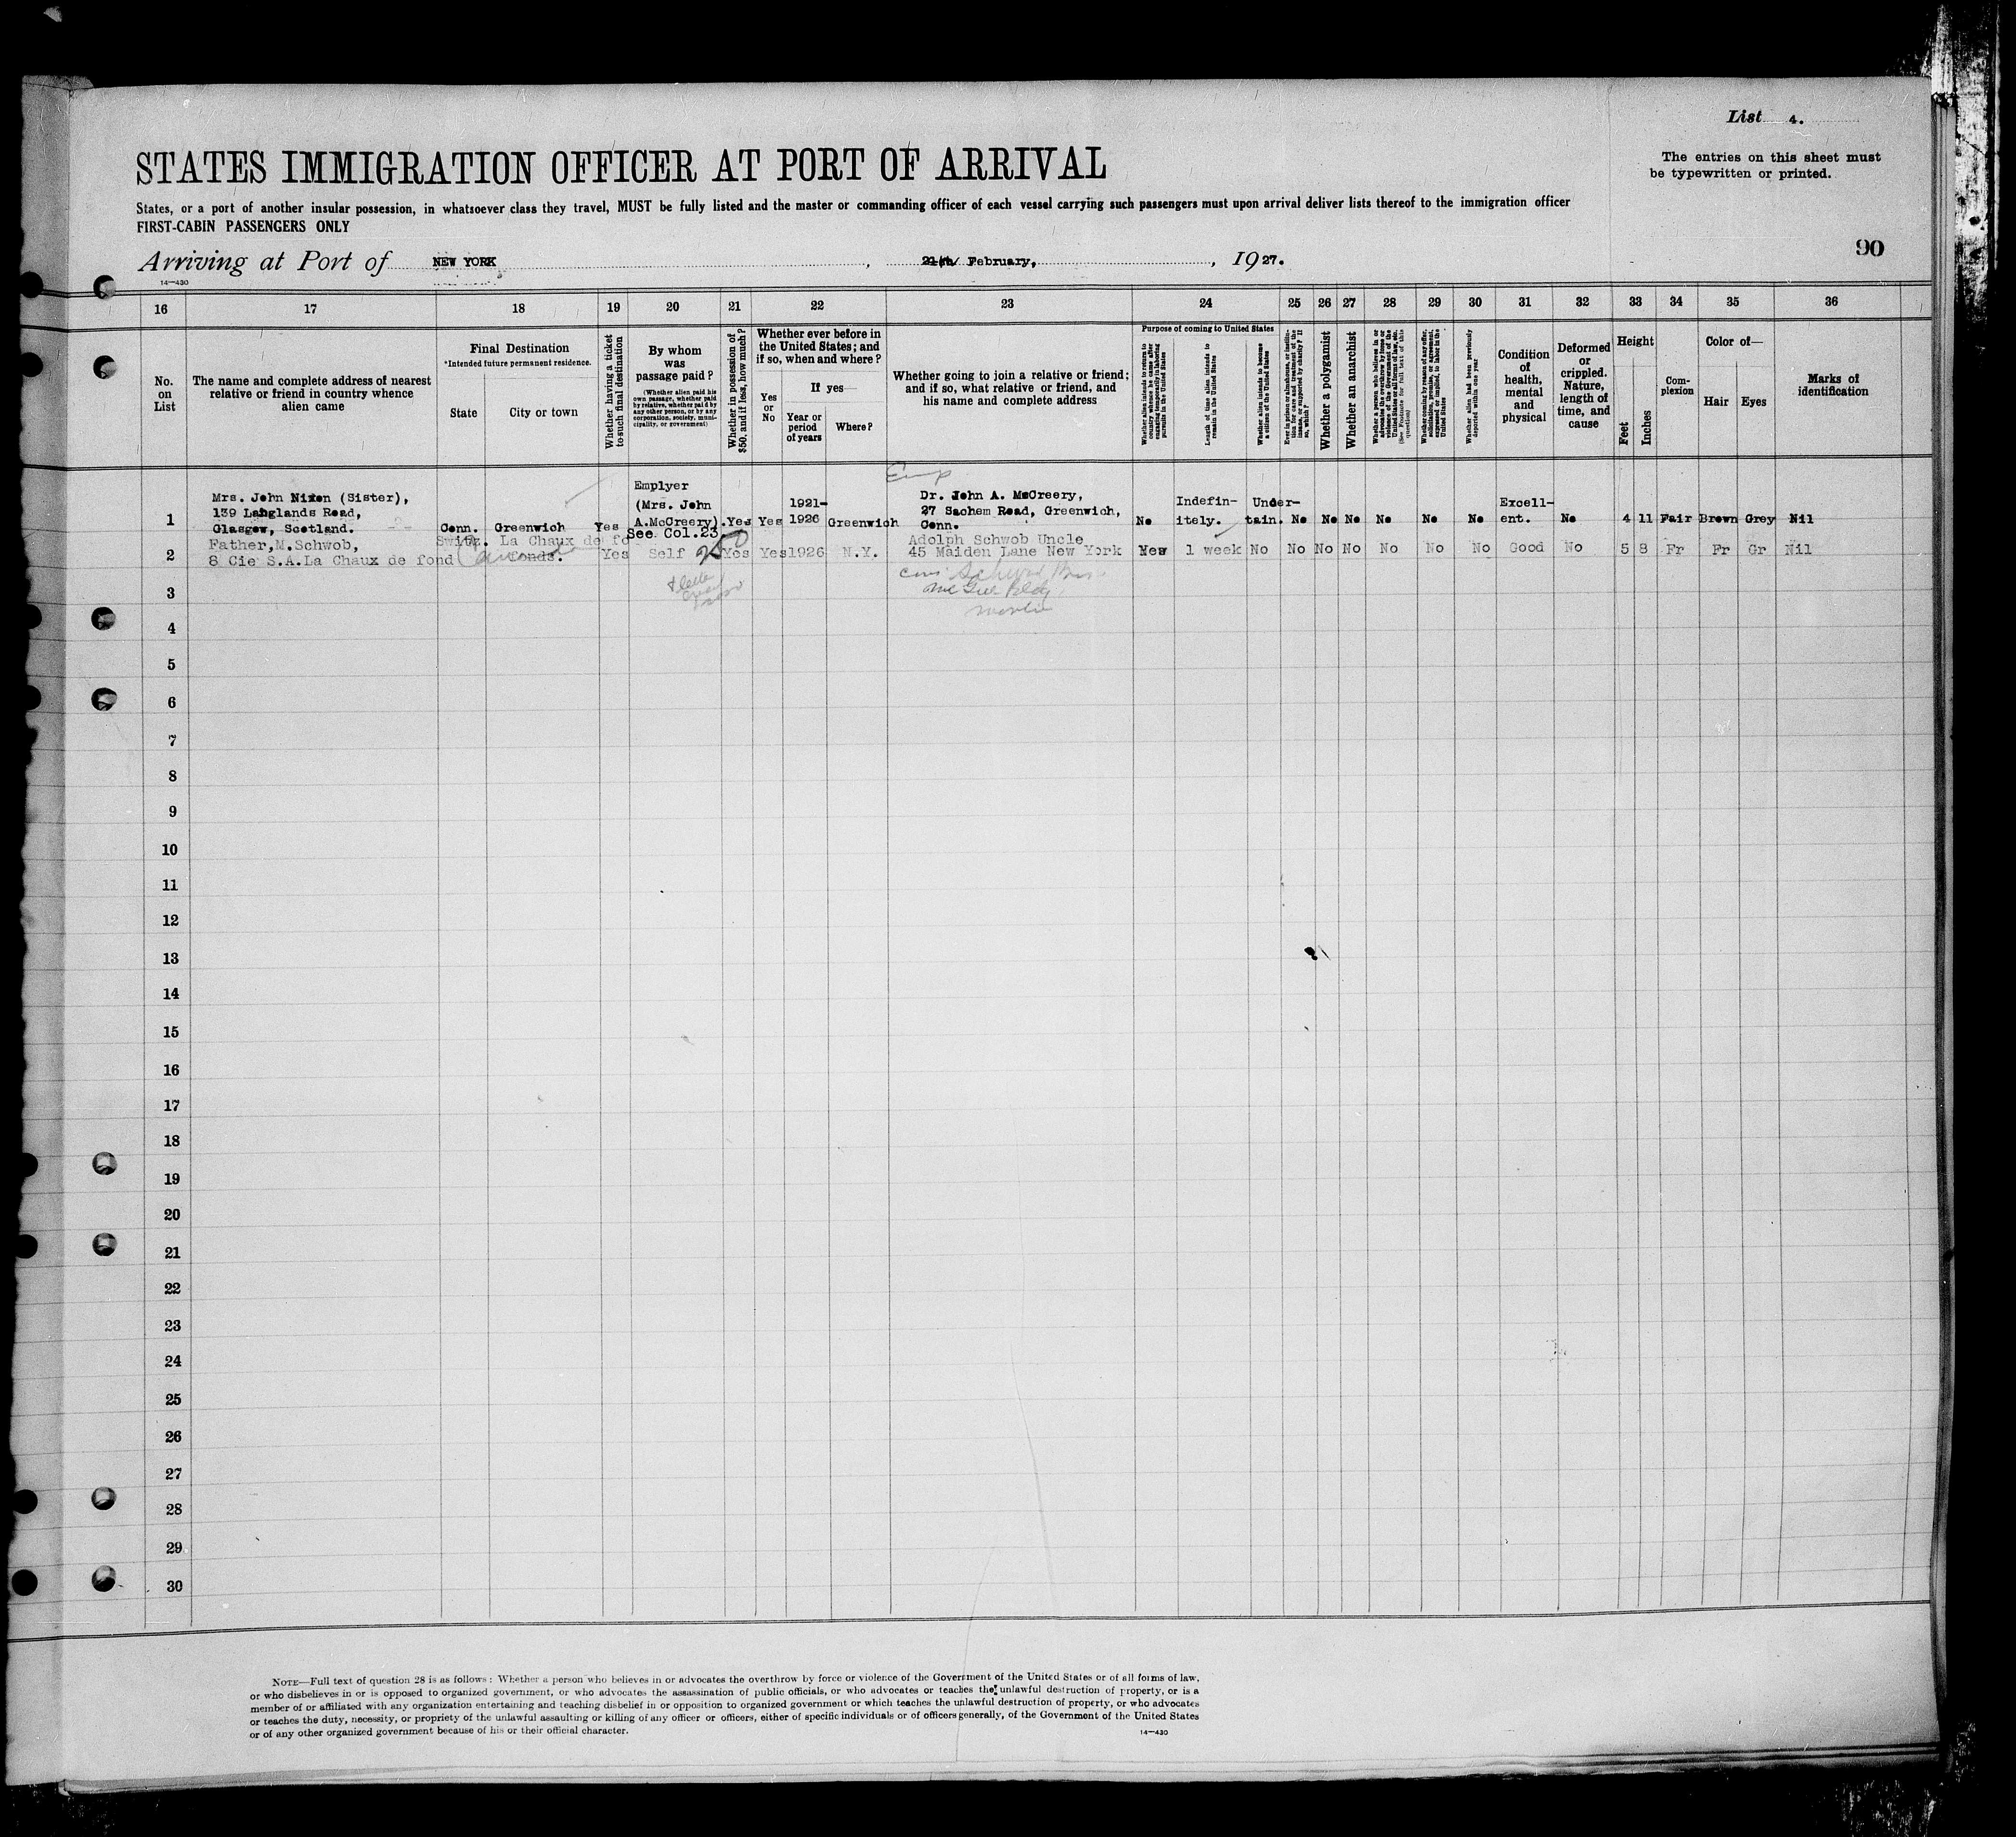 List 4.
The entries on this sheet must
be typewritten or printed.
STATES IMMIGRATION OFFICER AT PORT OF ARRIVAL
States, or a port of another insular possession, in whatsoever class they travel, MUST be fully listed and the master or commanding officer of each vessel carrying such passengers must upon arrival deliver lists thereof to the immigration officer
FIRST-CABIN PASSENGERS ONLY
90
Arriving at Port of NEW YORK , February, , 1927.
14—430
16 17 18 19 20 21 22 23 24 25 26 27 28 29 30 31 32 33 34 35 36
No.
on
List
The name and complete address of nearest
relative or friend in country whence
alien came
Final Destination
*Intended future permanent residence.
State
City or town
Whether having a ticket
to such final destination
By whom
was
passage paid?
(Whether alien paid his
own passage, whether paid
by relative, whether paid by
any other person, or by any
corporation, society, muni-
cipality, or government)
Whether in possession of
$50, and if less, how much?
Whether ever before in
the United States; and
if so, when and where?
Yes
or
No
If yes—
Year or
period
of years
Where?
Whether going to join a relative or friend;
and if so, what relative or friend, and
his name and complete address
Purpose of coming to United States
Whether alien intends to return to
country whence he came after
engaging temporarily in laboring
pursuits in the United States
Length of time alien intends to
remain in the United States
Whether alien intends to become
a citizen of the United States
Ever in prison or almshouse, or institu-
tion for care and treatment of the
insane, or supported by charity? If
so, which?
Whether a polygamist
Whether an anarchist
Whether a person who believes in or
advocates the overthrow by force or
violence of the Government of the
United States or all forms of law, etc.
(See Footnote for full text of this
question)
Whether coming by reason of any offer,
solicitation, promise, or agreement,
expressed or implied, to labor in the
United States
Whether alien had been previously
deported within one year
Condition
of
health,
mental
and
physical
Deformed
or
crippled.
Nature,
length of
time, and
cause
Height
Feet
Inches
Com-
plexion
Color of—
Hair
Eyes
Marks of
identification
1
Mrs. John Nixon (Sister),
139 Langlands Road,
Glasgow, Scotland.
Conn. Greenwich Yes
Emplyer
(Mrs. John
A.McCreery).
See Col.23
Yes Yes
1921-
1926
Greenwich
Emp
Dr. John A. McCreery,
27 Sachem Road, Greenwich,
Conn.
No
Indefin-
itely.
Under-
tain.
No No No No No No
Excell-
ent.
No 4 11 Fair Brown Grey Nil
2
Father,M.Schwob,
8 Cie S.A.La Chaux de fond
Switz. La Chaux de fo
conds.
Yes Self 250 Yes Yes 1926 N.Y.
Adolph Schwob Uncle
45 Maiden Lane New York
1 week No No No No No No No Good No 5 8 Fr Fr Gr Nil
3
4
5
6
7
8
9
10
11
12
13
14
15
16
17
18
19
20
21
22
23
24
25
26
27
28
29
30
NOTE—Full text of question 28 is as follows: Whether a person who believes in or advocates the overthrow by force or violence of the Government of the United States or of all forms of law,
or who disbelieves in or is opposed to organized government, or who advocates the assassination of public officials, or who advocates or teaches the unlawful destruction of property, or is a
member of or affiliated with any organization entertaining and teaching disbelief in or opposition to organized government or which teaches the unlawful destruction of property, or who advocates
or teaches the duty, necessity, or propriety of the unlawful assaulting or killing of any officer or officers, either of specific individuals or of officers generally, of the Government of the United States
or of any other organized government because of his or their official character.
14—430